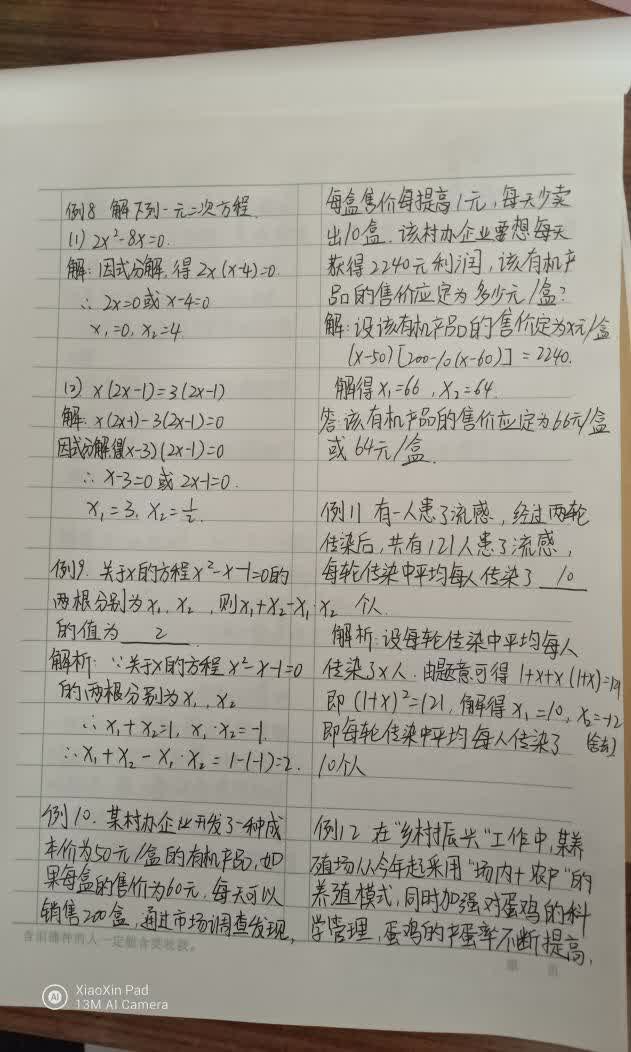 例8 解下列一元二次方程.
(1) 2x²-8x=0.
解: 因式分解, 得 2x(x-4)=0.
∴ 2x=0 或 x-4=0
x₁=0, x₂=4.
(2) x(2x-1)=3(2x-1)
解: x(2x-1)-3(2x-1)=0
因式分解得(x-3)(2x-1)=0
∴ x-3=0 或 2x-1=0.
x₁=3, x₂=1/2.
例9. 关于x的方程x²-x-1=0的
两根分别为x₁, x₂, 则x₁+x₂-x₁·x₂
的值为 2
解析: ∵关于x的方程 x²-x-1=0
的两根分别为x₁, x₂
∴ x₁+x₂=1, x₁·x₂=-1.
∴ x₁+x₂-x₁·x₂=1-(-1)=2.
例10. 某村办企业开发了一种成
本价为50元/盒的有机产品, 如
果每盒的售价为60元, 每天可以
销售200盒, 通过市场调查发现,
每盒售价每提高1元, 每天少卖
出10盒. 该村办企业要想每天
获得2240元利润, 该有机产
品的售价应定为多少元/盒?
解: 设该有机产品的售价定为x元/盒
(x-50)[200-10(x-60)]=2240.
解得 x₁=66, x₂=64.
答: 该有机产品的售价应定为66元/盒
或 64元/盒.
例11 有一人患了流感, 经过两轮
传染后, 共有121人患了流感,
每轮传染中平均每人传染了 10
个人.
解析: 设每轮传染中平均每人
传染了x人. 由题意可得 1+x+x(1+x)=121.
即 (1+x)²=121, 解得 x₁=10, x₂=-12
(舍去)
即每轮传染中平均每人传染了
10个人
例12 在"乡村振兴"工作中, 某养
殖场从今年起采用"场内+农户"的
养殖模式, 同时加强对蛋鸡的科
学管理, 蛋鸡的产蛋率不断提高,
XiaoXin Pad
13M AI Camera